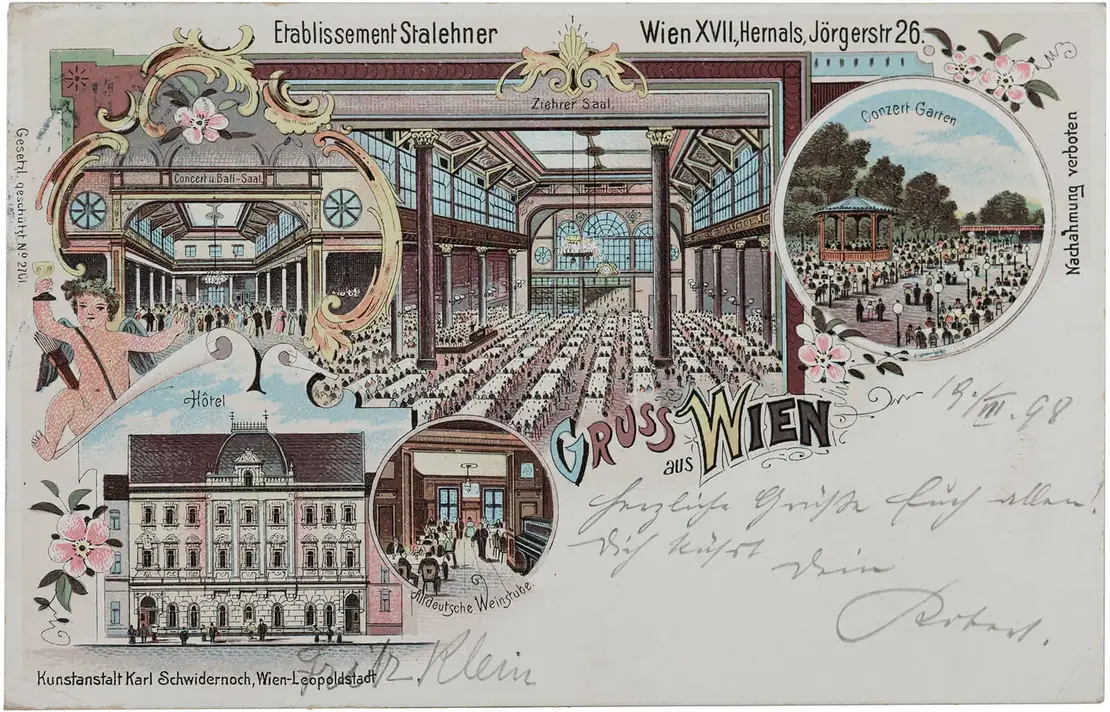 Etablissement Stalehner
Wien XVII, Hernals, Jörgerstr 26.
Ziehrer Saal.
Conzert Garten
Concert u. Ball-Saal.
Gesetzl. geschützt No 2761
Nachahmung verboten
Hôtel
Altdeutsche Weinstube.
GRUSS
aus WIEN
19./III. 98
Herzliche Grüße Euch allen!
Dich küsst
Dein
Robert.
Fritz Klein
Kunstanstalt Karl Schwidernoch, Wien-Leopoldstadt